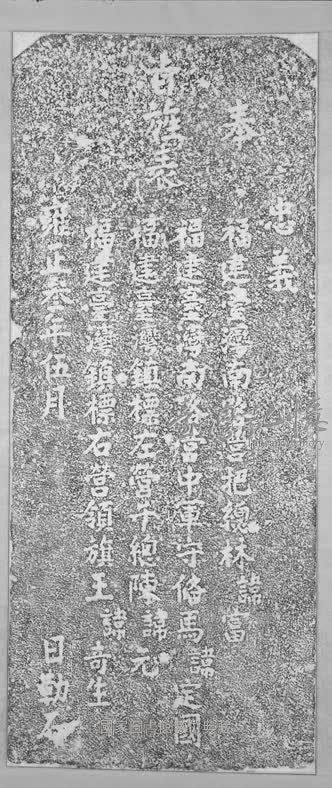 忠義
奉
旨旌表
福建臺灣南路營把總林諱富
福建臺灣南路營中軍守俻馬諱定國
福建臺灣鎮標左營千總陳諱元
福建臺灣鎮標右營領旗王諱奇生
雍正叁年伍月 日勒石